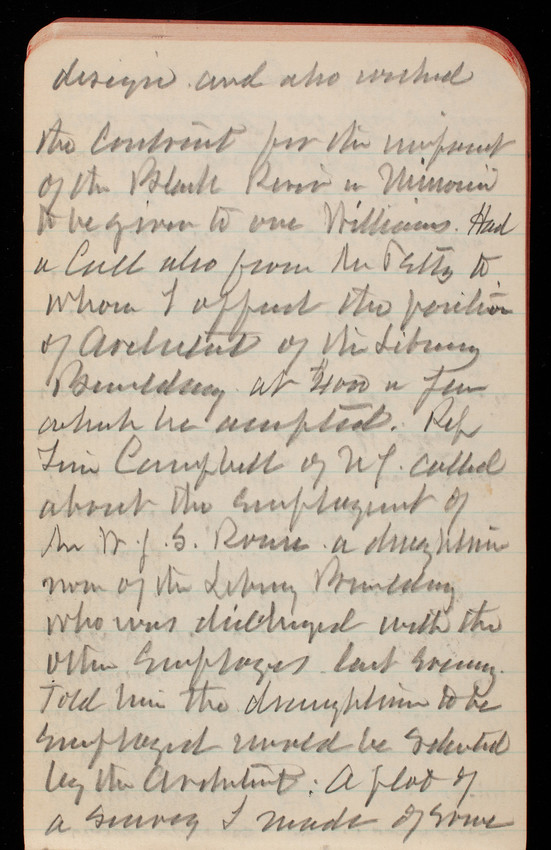 design and also wished
the Contract for the improvement
of the Black River in Missouri
to be given to one Williams. Had
a Call also from Mr Peltz to
whom I offered the position
of Architect of the Library
Building at $4000 a year
which he accepted. Rep
Tim Campbell of NY. called
about the employment of
Mr W. J. S. Rowe a draughtsman
now of the Library Building
who was discharged with the
other Employees last evening.
Told him the draughtsmen to be
employed would be selected
by the Architect: A plot of
a survey I made of some